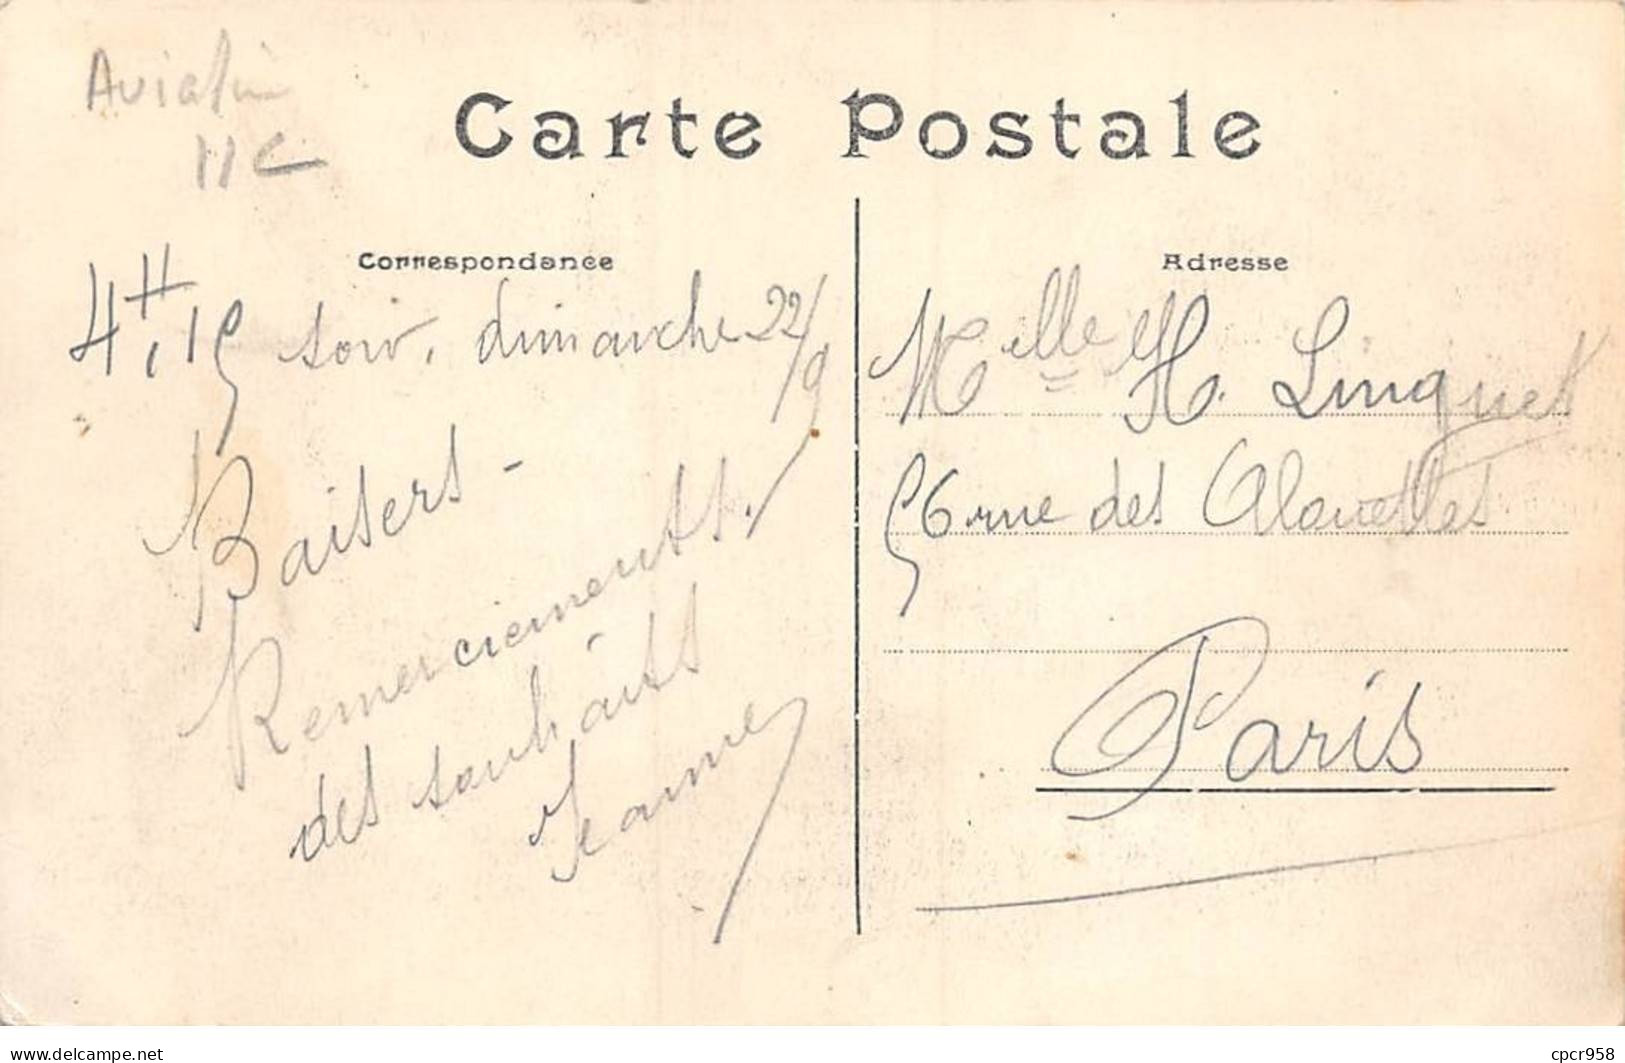 Aviation
11C
Carte Postale
Correspondance
4H,15 soir, dimanche 22/9
Baisers -
Remerciements
des souhaits
Jeanne
Adresse
Melle H. Linquet
56 rue des Alouettes
Paris
www.delcampe.net
cpcr958